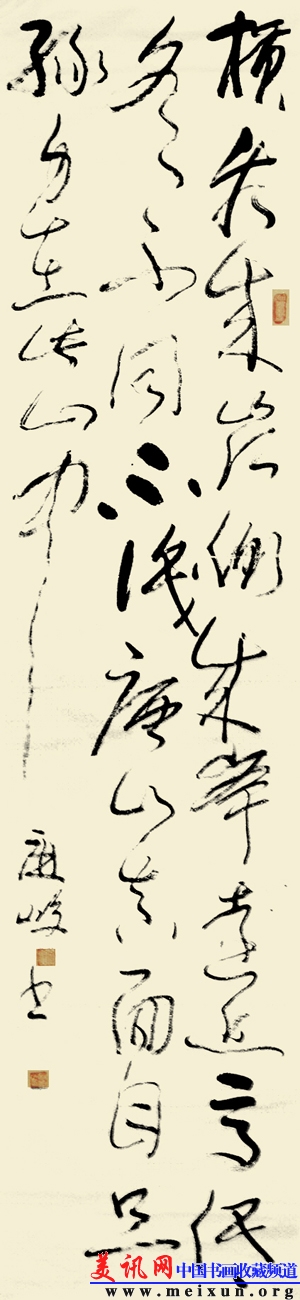 横看成岭侧成峯遠近高低
各不同不识庐山真面目只
缘身在此山中
峻书
美讯网 中国书画收藏频道
www.meixun.org